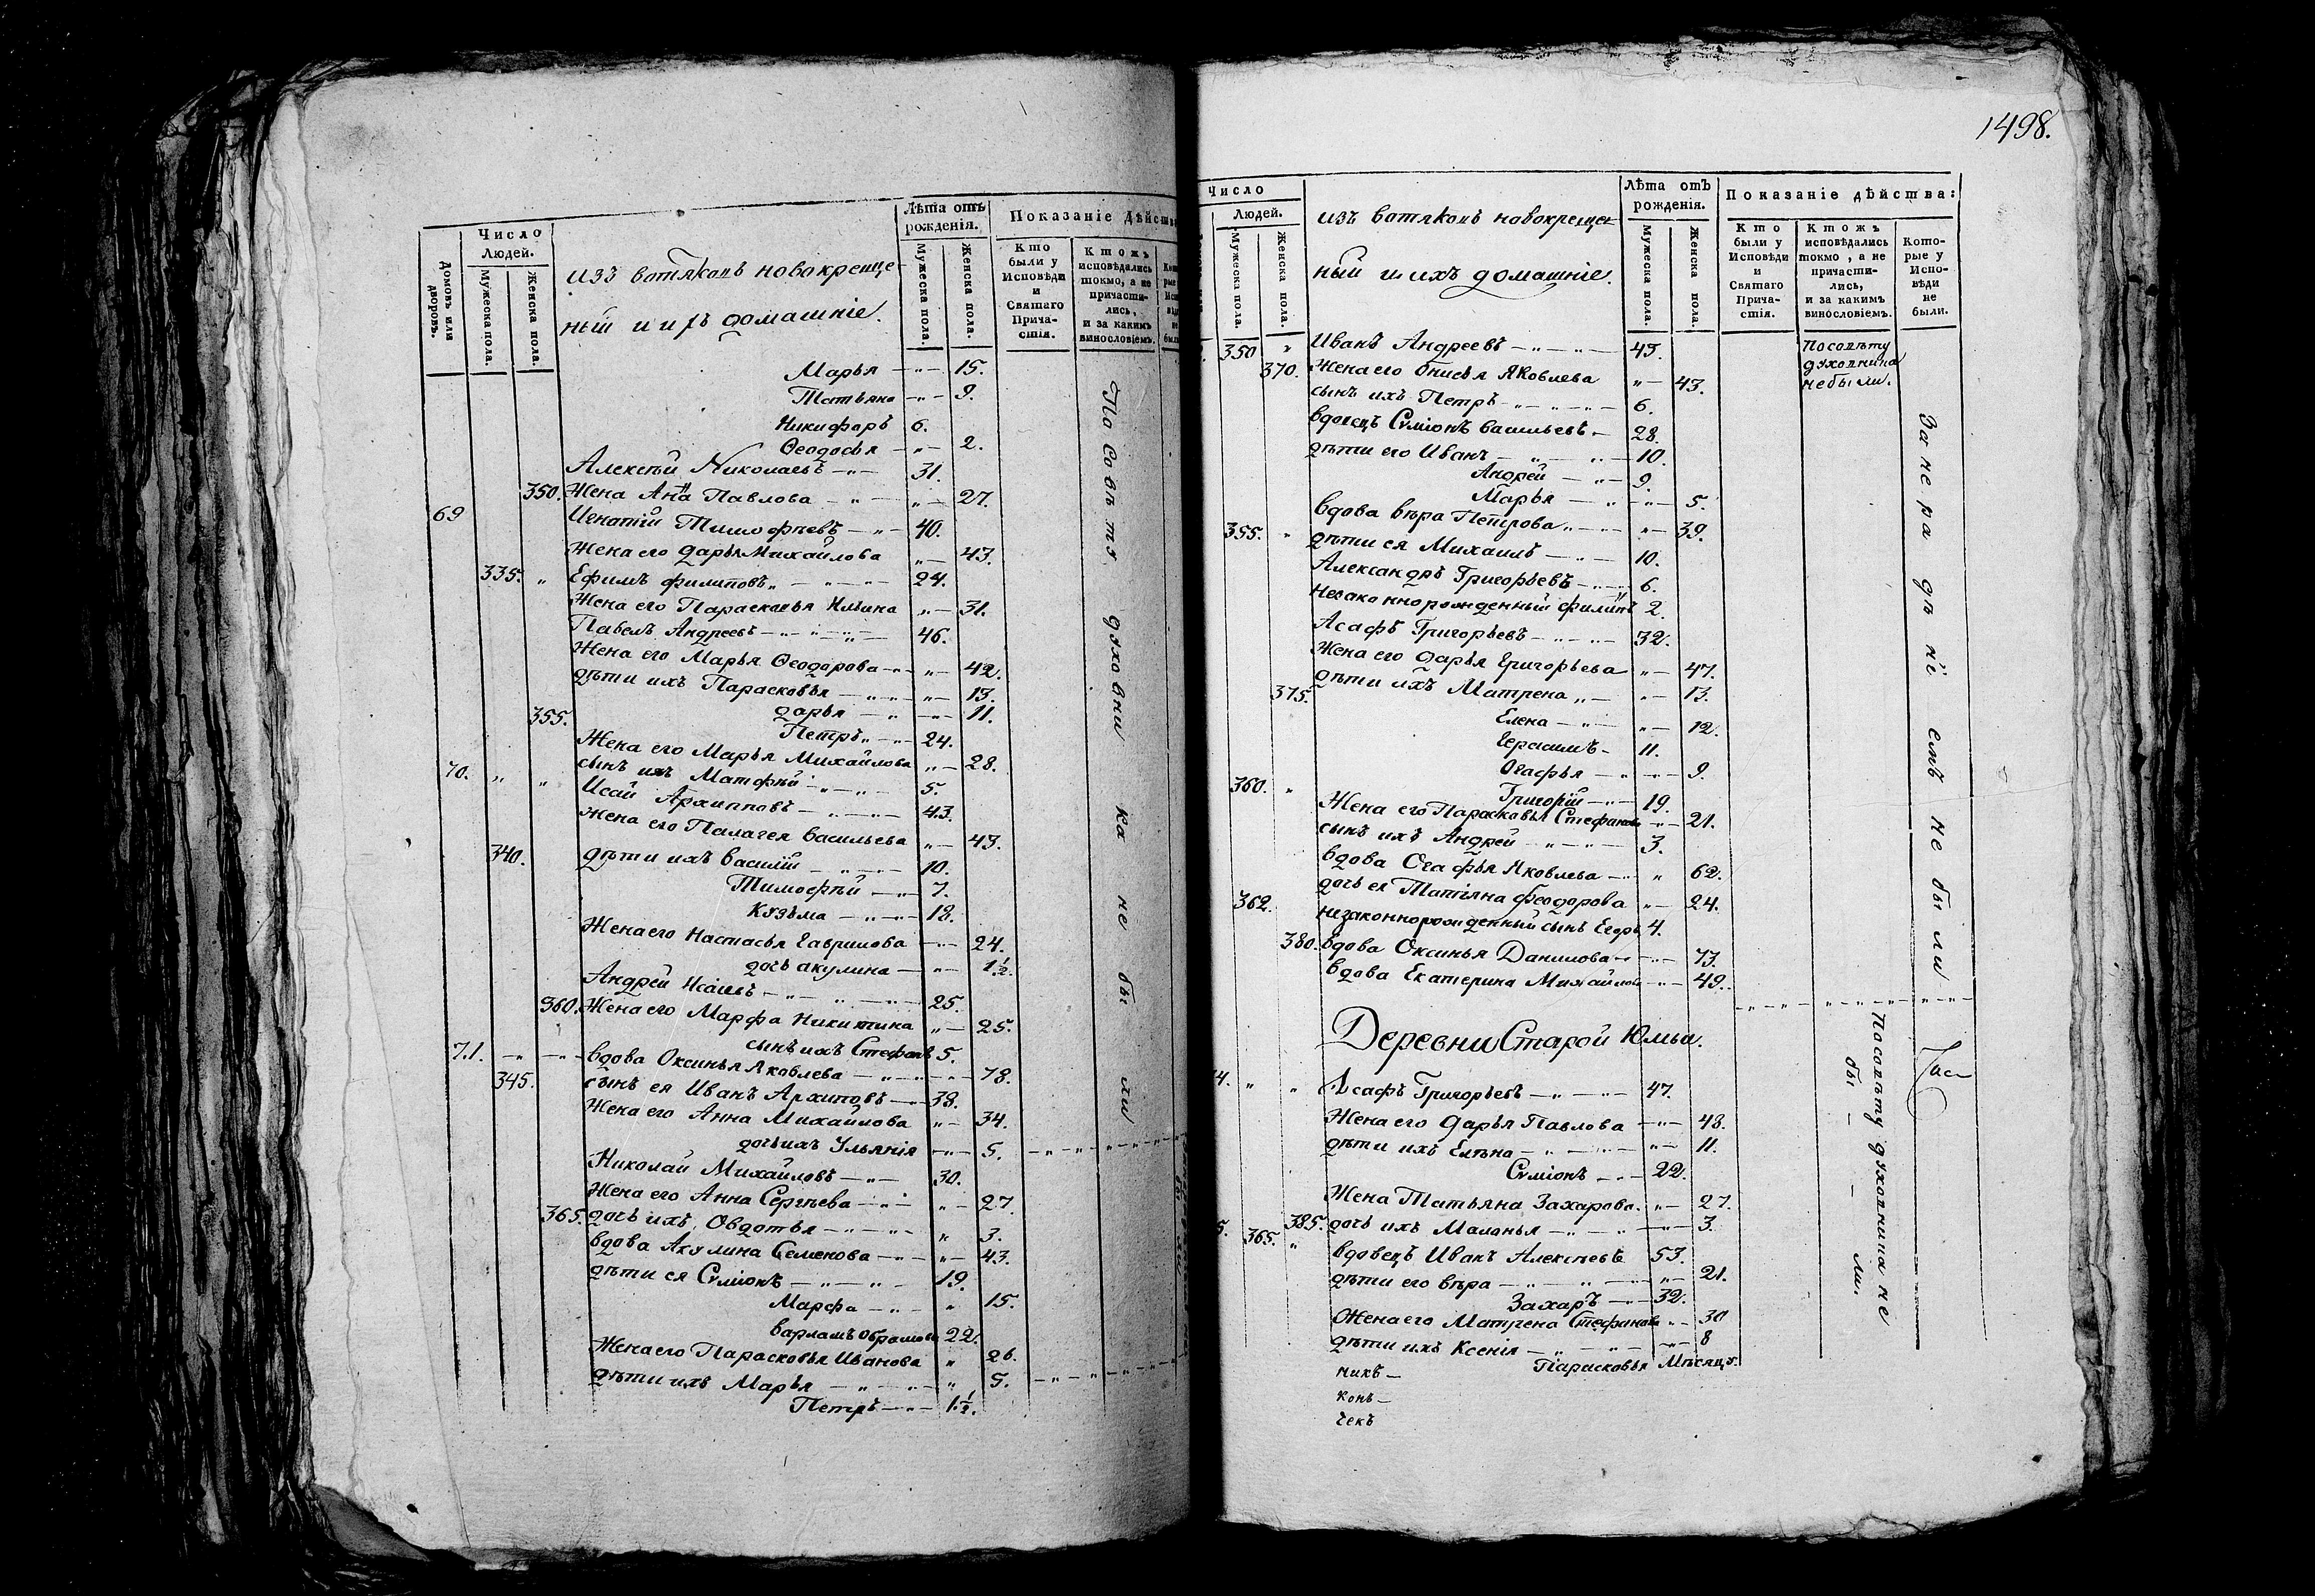 Домовъ или дворовъ.
Число
Людей.
Мужеска пола.
Женска пола.
изъ вотяковъ новокреще-
ный и ихъ домашнiе.
Лѣта отъ
рожденiя.
Мужеска пола.
Женска пола.
Показанiе Дѣйс
Кто
были у
Исповѣди
и
Святаго
Прича-
стiя.
Ктожъ
исповѣдались
токмо, а не
причасти-
лись,
и за какимъ
винословiемъ.
Марья — „ — 15.
Татьяна — „ — 9.
Никифоръ 6.
Ѳеодосья — „ — 2.
Алексѣй Николаевъ — „ — 31.
350. Жена Анна Павлова — „ — „ — 27.
69 Игнатiй Тимофѣевъ — „ — 40.
Жена его Дарья Михайлова „ — 43.
335. „ Ефимъ Филиповъ „ — „ — 24.
Жена его Парасковья Ильина „ — 31.
Павелъ Андреевъ — „ — „ — 46.
Жена его Марья Ѳеодорова — „ — „ — 42.
дѣти ихъ Парасковья — „ — „ — 13.
355. Дарья — „ — „ — 11.
Петръ „ — „ — 24.
Жена его Марья Михайлова „ — 28.
сынъ ихъ Матфѣй — „ — „ — 5.
70. „ „ Исай Архиповъ — „ — „ — 43.
Жена его Палагея Васильева „ — 43.
340. дѣти ихъ Василiй — „ — „ — 10.
Тимофѣй — „ — 7.
Кузьма — „ — „ — 18.
Жена его Настасья Гаврилова — „ — 24.
дочь акулина — „ — 1½.
Андрей Исаiевъ — „ — „ — „ — 25.
360. Жена его Марфа Никитина „ — 25.
сынъ ихъ Стефанъ 5.
71. — „ — „ — вдова Оксинья Яковлева — „ — „ — „ — 78.
345. сынъ ея Иванъ Архиповъ — „ — 38.
Жена его Анна Михайлова „ — 34.
дочь ихъ Ульянiя — „ — 5.
Николай Михайловъ — „ — 30.
Жена его Анна Сергѣева — „ — „ — 27.
365. дочь ихъ Овдотья — „ — „ — „ 3.
вдова Акулина Семенова — „ — „ — 43.
дѣти ея Сѵмiонъ — „ — „ — 19.
Марфа — „ — „ 15.
варламъ Обрамовъ 22.
Жена его Парасковья Иванова „ 26.
дѣти ихъ Марья — „ — „ — „ 5.
Петръ — „ — 1½.
По Совѣту духовника не были
1498.
Число
Людей.
Мужеска пола.
Женска пола.
изъ вотяковъ новокрещен-
ный и ихъ домашнiе.
Лѣта отъ
рожденiя.
Мужеска пола.
Женска пола.
Показанiе дѣйства:
Кто
были у
Исповѣди
и
Святаго
Прича-
стiя.
Ктожъ
исповѣдались
токмо, а не
причасти-
лись,
и за какимъ
винословiемъ.
Кото-
рые у
Испо-
вѣди
не
были.
350 „ Иванъ Андреевъ — „ — „ — 45.
По совѣту
духовника
небыли.
370. Жена его Ѳнисья Яковлева „ — 43.
сынъ ихъ Петръ — „ — „ — 6.
вдовецъ Сѵмiонъ Васильевъ — 28.
дѣти его Иванъ — „ — „ — 10.
Андрей — „ — 9.
Марья — „ — „ — 5.
вдова вѣра Петрова „ — „ — 39.
355. „ дѣти ея Михаилъ — „ — 10.
Александръ Григорьевъ — „ — „ 6.
незаконнорожденный филипъ 2.
Асафъ Григорьевъ — „ — „ — 32.
Жена его Дарья Григорьева „ — 47.
375. дѣти ихъ Матрена „ — „ — 13.
Елена — „ — „ — 12.
Герасимъ — 11.
Огафья — „ — „ — 9.
360. „ Григорiй — „ — 19.
Жена его Парасковья Стефанова — „ — 21.
сынъ ихъ Андрей — „ — „ — 3.
вдова Огафья Яковлева — „ — „ 62.
дочь ея Татiяна Феодорова „ — 24.
362. незаконнорожденный сынъ Егоръ 4.
380. вдова Оксинья Данилова — „ — „ — 73.
вдова Екатерина Михайлова — „ — 49.
За нерадѣнiемъ не были
Деревни Старой Юмьи.
4. „ „ Асафъ Григорьевъ — „ — „ — 47.
Жена его Дарья Павлова — „ — 48.
дѣти ихъ Елѣна — „ — „ — „ — 11.
Сѵмiонъ — „ — 22.
Жена Татьяна Захарова. „ — 27.
385. дочь ихъ Маланья — „ — „ — „ — 3.
5. 365. „ вдовецъ Иванъ Алексѣевъ 53.
дѣти его вѣра — „ — „ — „ — 21.
Захаръ — „ — 32.
Жена его Матрена Стефанова „ — 30
дѣти ихъ Ксенiя — „ — „ — „ — 8
Парасковья Мѣсяцъ.
По совѣту духовника не
бы — — ли.
никъ —
конъ —
чекъ